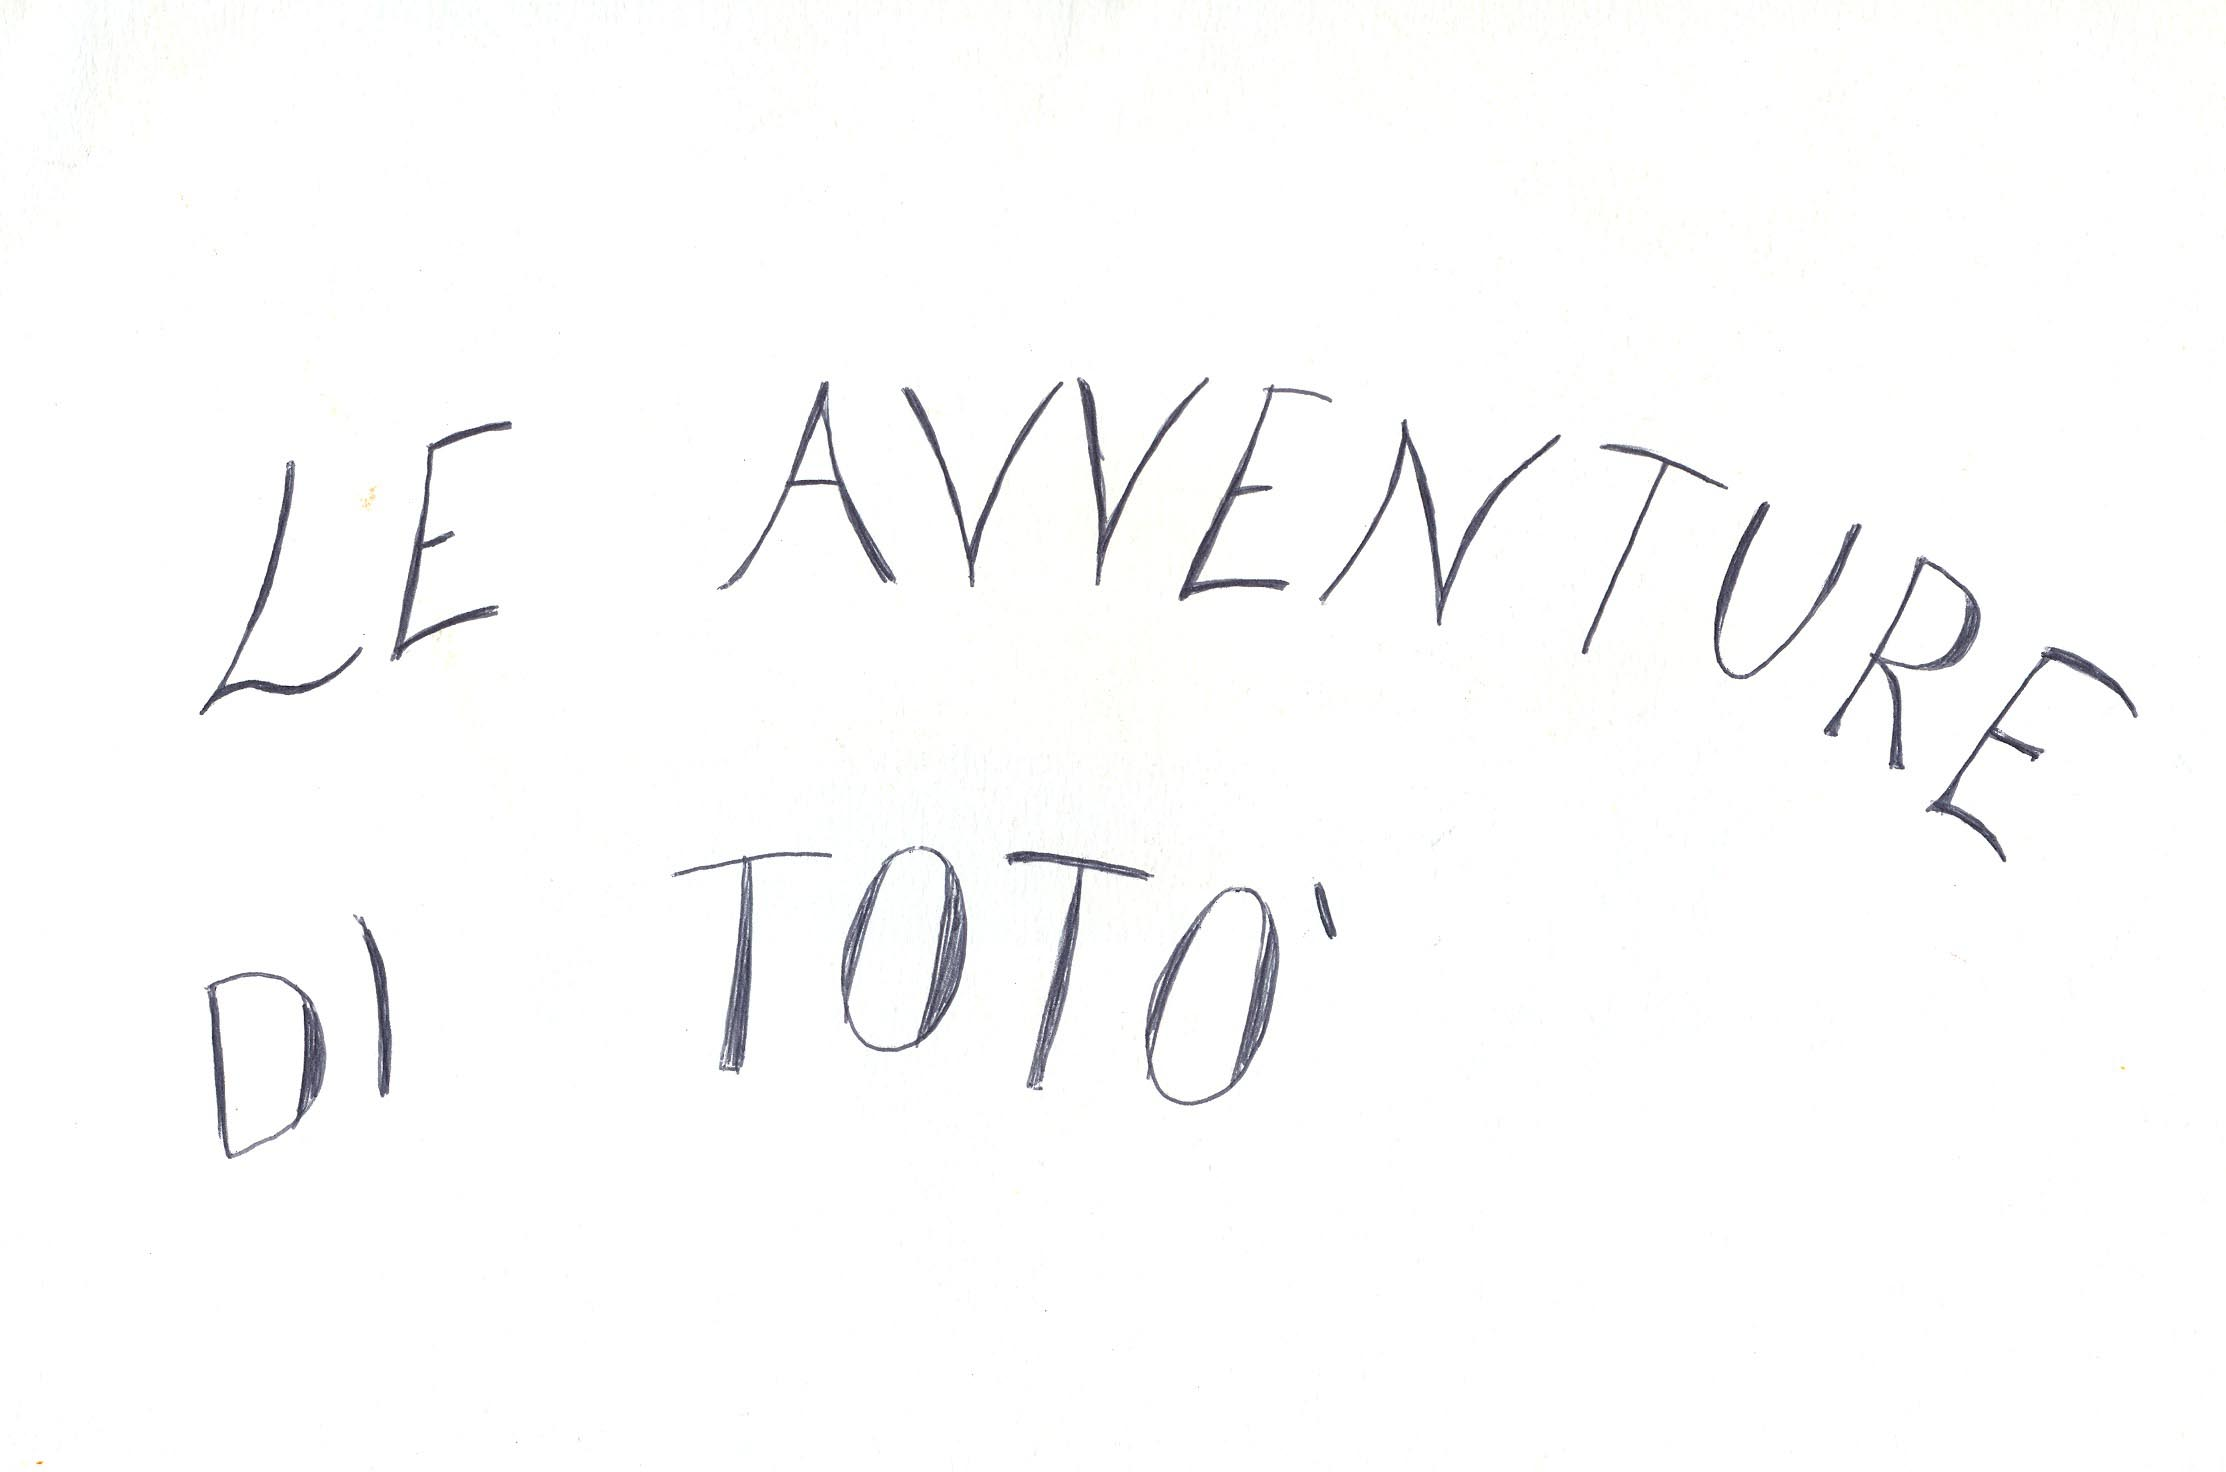 LE AVVENTURE
DI TOTO'